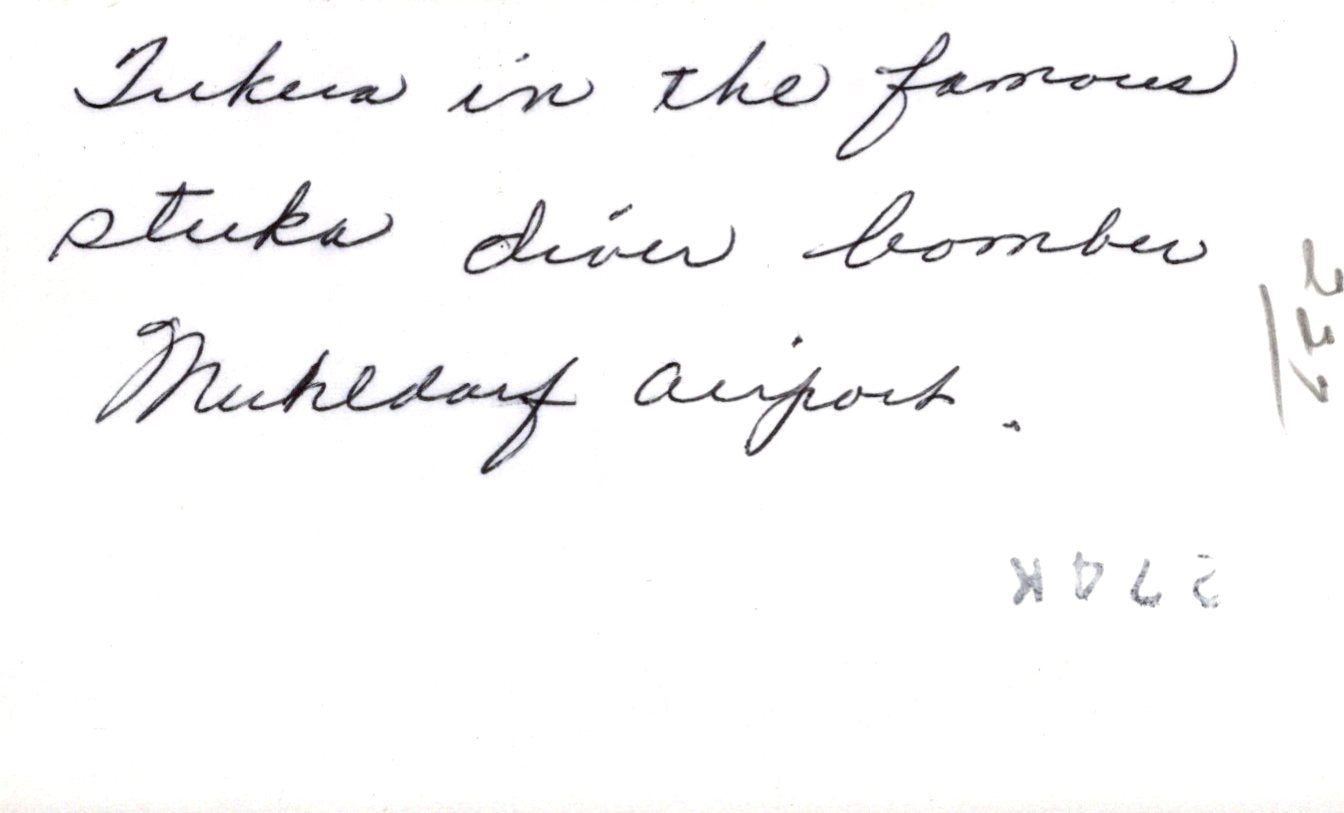 in the famous
stuka diver bomber
Muhldorf airport.
274K